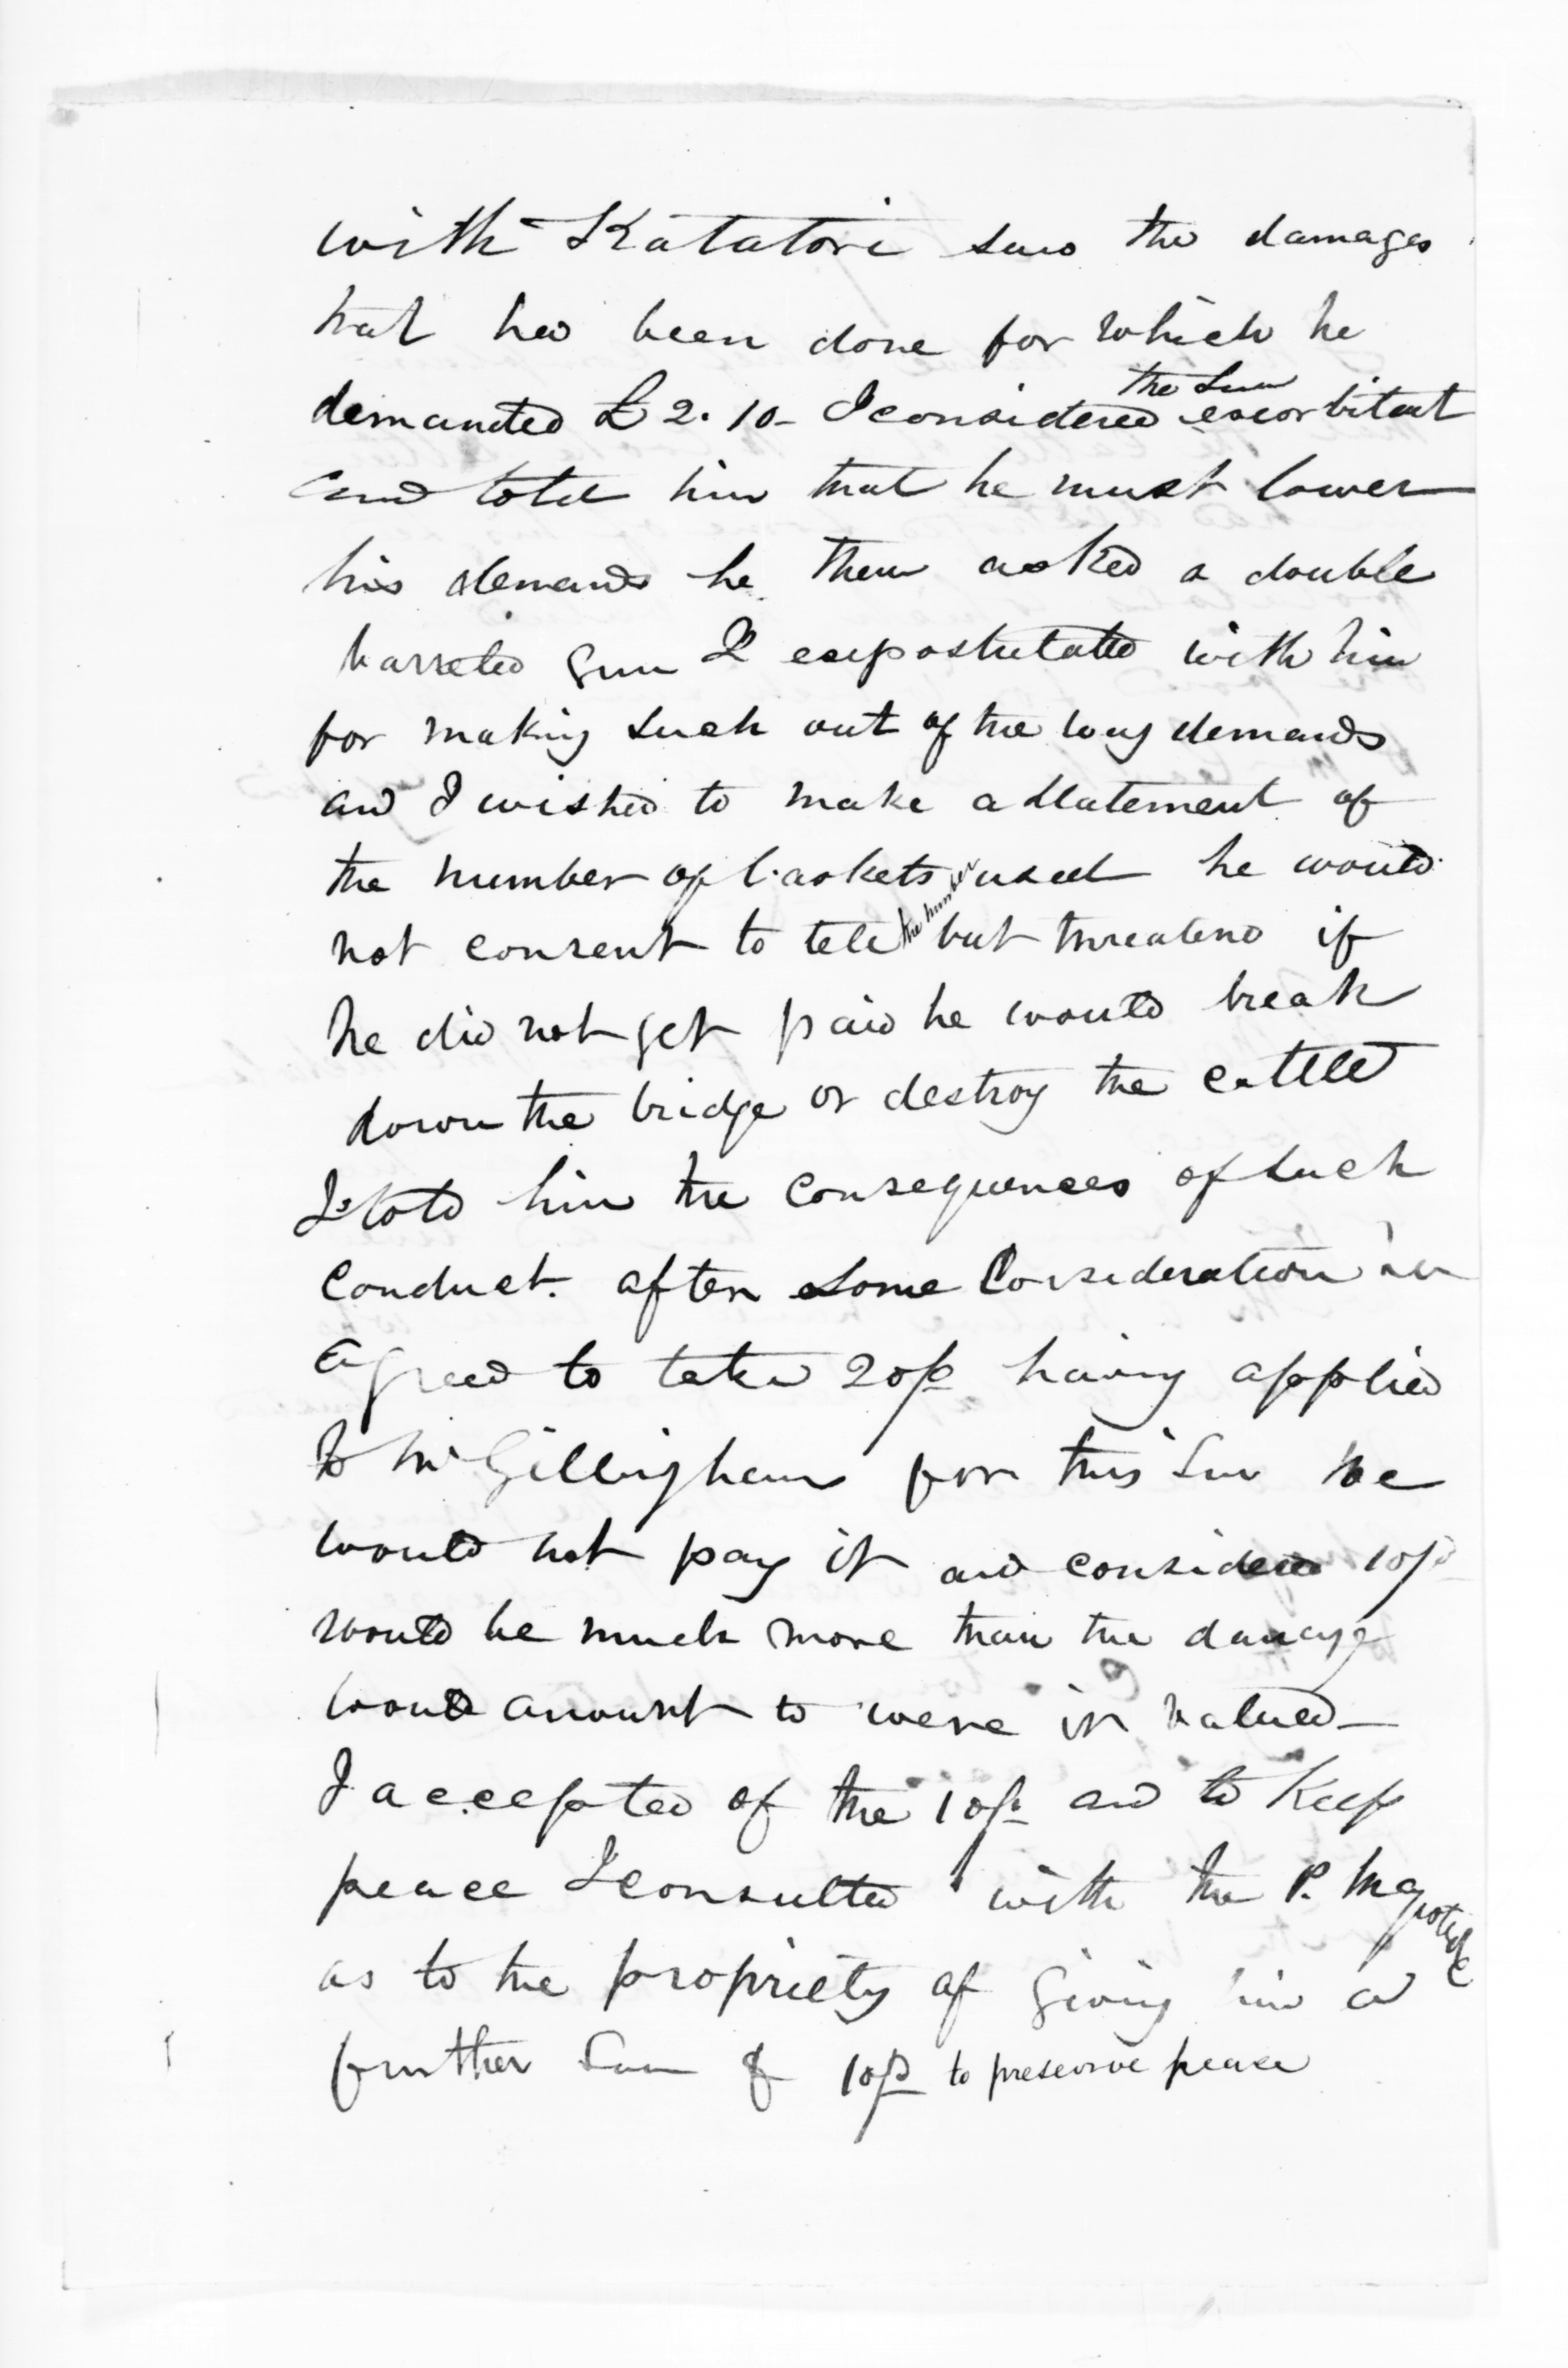 with Katatore saw the damages
that had been done for which he
demanded £2.10- I considered the sum excorbitant
and told him that he must lower
his demands he then asked a double
barreled gun I expostulated with him
for making such out of the way demands
and I wished to make a statement of
the number of baskets used he would
not consent to tell the number but threatend if
he did not get paid he would break
down the bridge or destroy the cattle
I told him the consequences of such
conduct. after some Consideration he
agreed to take 20/- having applied
to Mr Gillingham for this sum he
would not pay it and considered 10/-
would be much more than the damage
would amount to were it valued-
I accepted of the 10/- and to keep
peace I consulted with the P. Mg
as to the propriety of giving him a
further Sum of 10/- to preserve peace